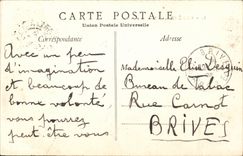 CARTE POSTALE
Union Postale Universelle
Correspondance
Adresse
Avec un peu
d'imagination
et beaucoup de
bonne volonté
vous pourrez
peut-être vous
Mademoiselle Elia
Bureau de Tabac
Rue Carnot
BRIVES